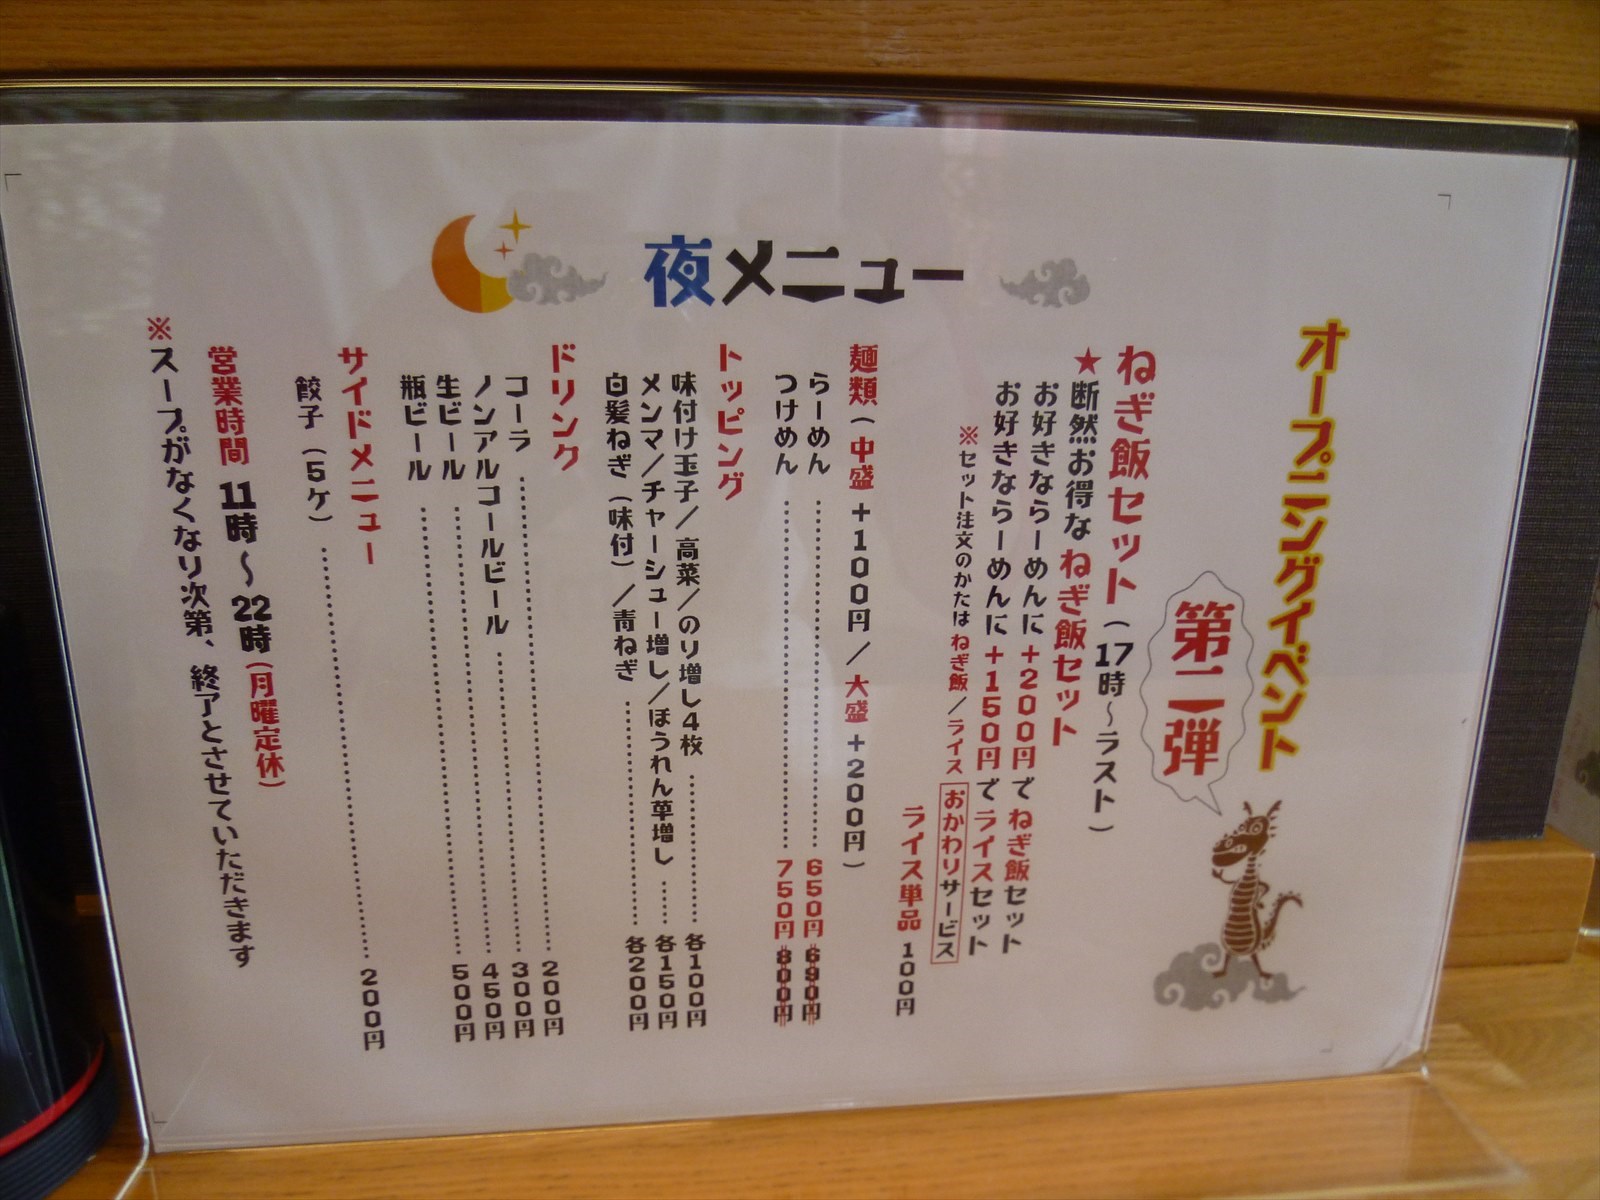 夜メニュー
オープニングイベント
第二弾
ねぎ飯セット(17時〜ラスト)
★断然お得なねぎ飯セット
お好きならーめんに+200円でねぎ飯セット
お好きならーめんに+150円でライスセット
※セット注文のかたはねぎ飯/ライスおかわりサービス
ライス単品 100円
麺類(中盛+100円/大盛+200円)
らーめん 650円 690円
つけめん 750円 800円
トッピング
味付け玉子/高菜/のり増し4枚 各100円
メンマ/チャーシュー増し/ほうれん草増し 各150円
白髪ねぎ(味付)/青ねぎ 各200円
ドリンク
コーラ 200円
ノンアルコールビール 300円
生ビール 450円
瓶ビール 500円
サイドメニュー
餃子(5ケ) 200円
営業時間 11時〜22時(月曜定休)
※スープがなくなり次第、終了とさせていただきます